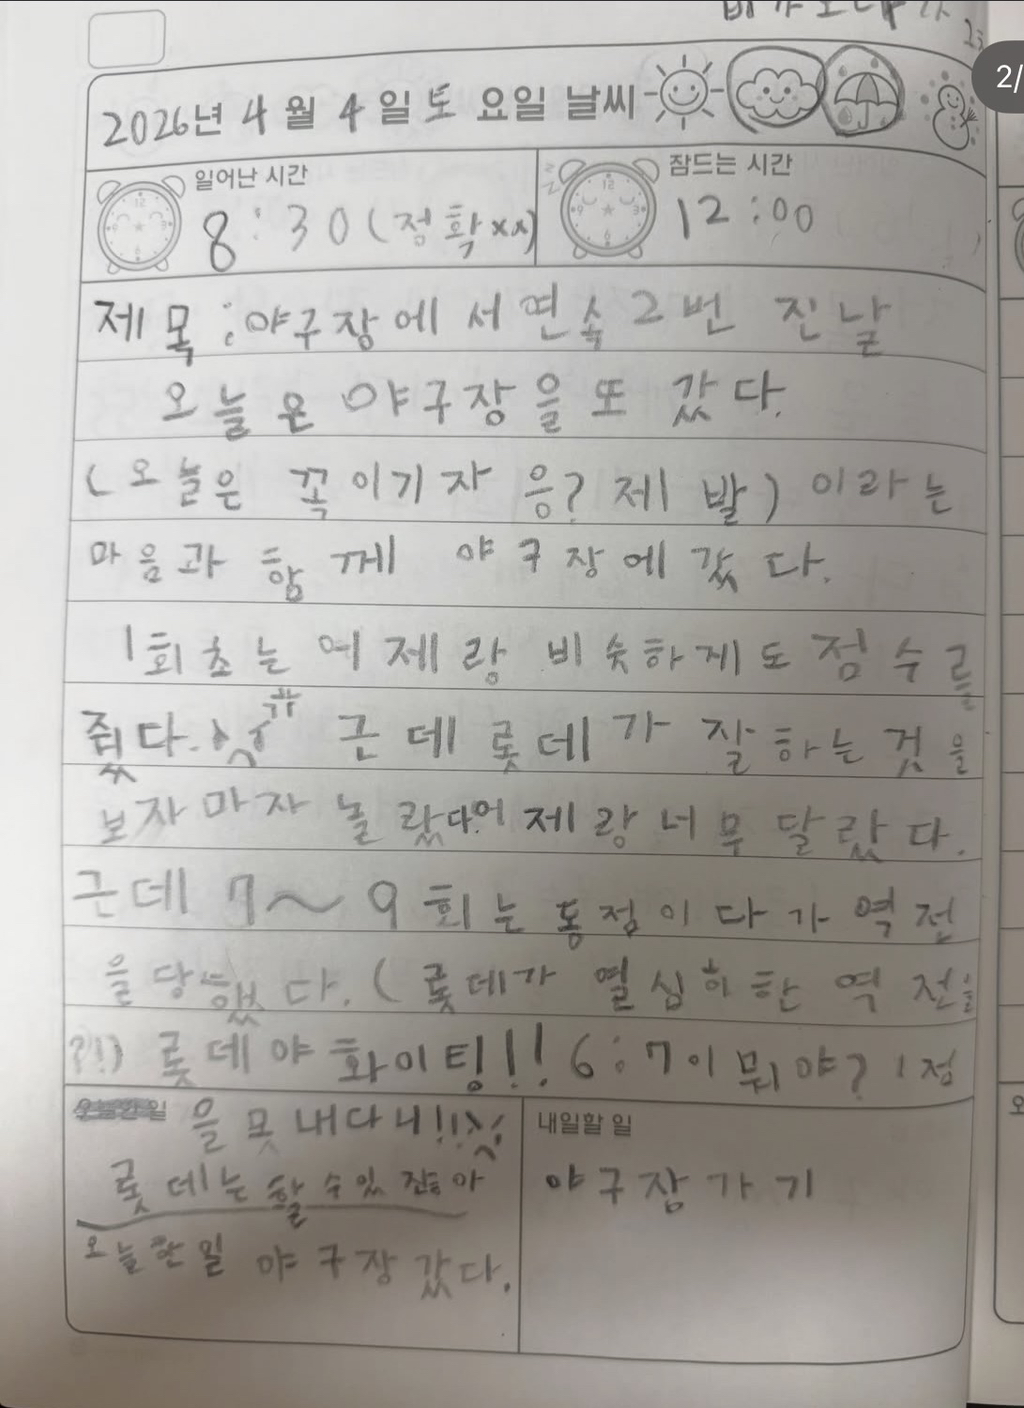 2/
23
2026년 4월 4일 토요일 날씨
일어난 시간
8:30(정확xx)
잠드는 시간
12:00
제목:야구장에서 연속 2번 진 날
오늘은 야구장을 또 갔다.
(오늘은 꼭 이기자 응? 제발) 이라는
마음과 함께 야구장에 갔다.
1회초는 어제랑 비슷하게도 점수를
줬다. ㅠ 근데 롯데가 잘하는 것을
보자마자 놀랐다. 어제랑 너무 달랐다.
근데 7~9회는 동점이다가 역전
을 당했다. (롯데가 열심히 한 역전을
?!) 롯데야 화이팅!! 6:7이 뭐야? 1점
을 못 내다니!!!
롯데는 할 수 있잖아
오늘 한 일 야구장 갔다.
내일할 일
야구잠 가기